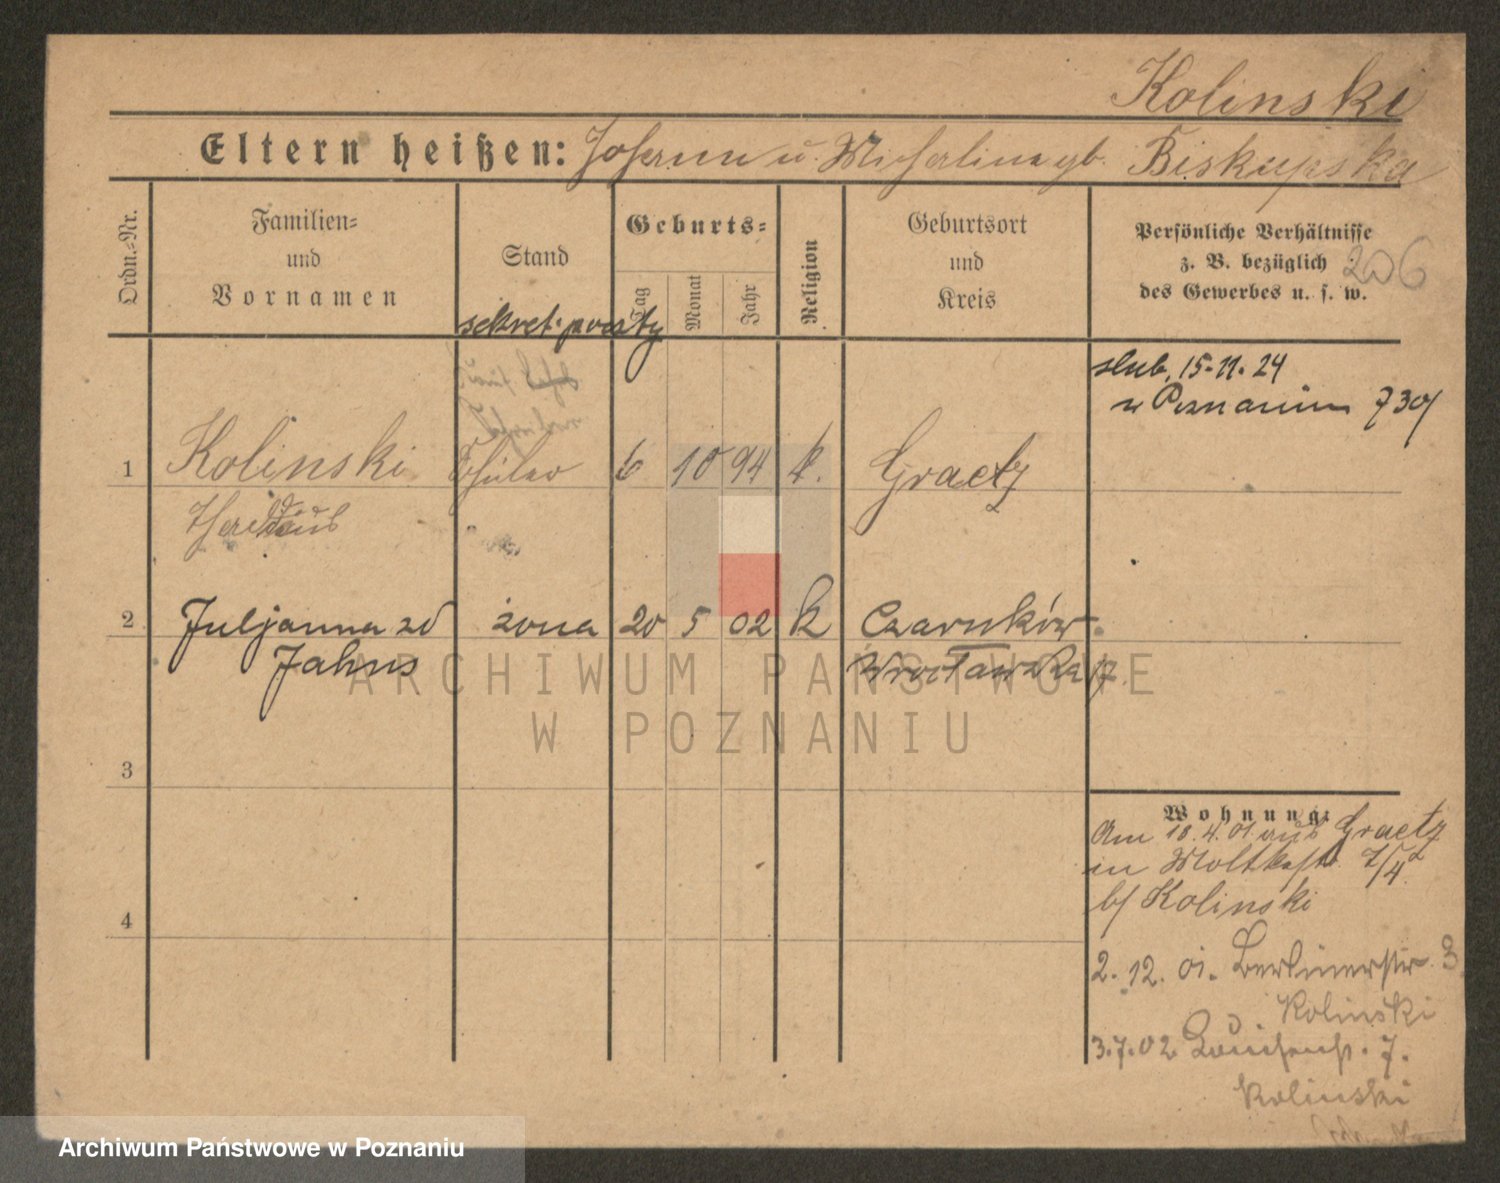 Kolinski
Eltern heißen: Johann u. Michalina gb. Biskupska
Ordn.-Nr.
Familien-
und
Vornamen
Stand
Geburts-
Tag
Monat
Jahr
Religion
Geburtsort
und
Kreis
Persönliche Verhältnisse
z. B. bezüglich
des Gewerbes u. s. w.
206
sekret. poczty
slub. 15-11-24
w Poznaniu 730/
1 Kolinski Schüler 6 10 94 k. Graetz
Thaddäus
2 Juljanna zd żona 20 5 02 k Czarnków
Jahns
3
4
Wohnung:
Am 10.4.01 aus Graetz
in Moltkestr. 7/4
b/ Kolinski
2. 12. 01. Berlinerstr. 3
Kolinski
3.7.02 Louisenstr. 7.
Kolinski
ARCHIWUM PAŃSTWOWE
W POZNANIU
Archiwum Państwowe w Poznaniu